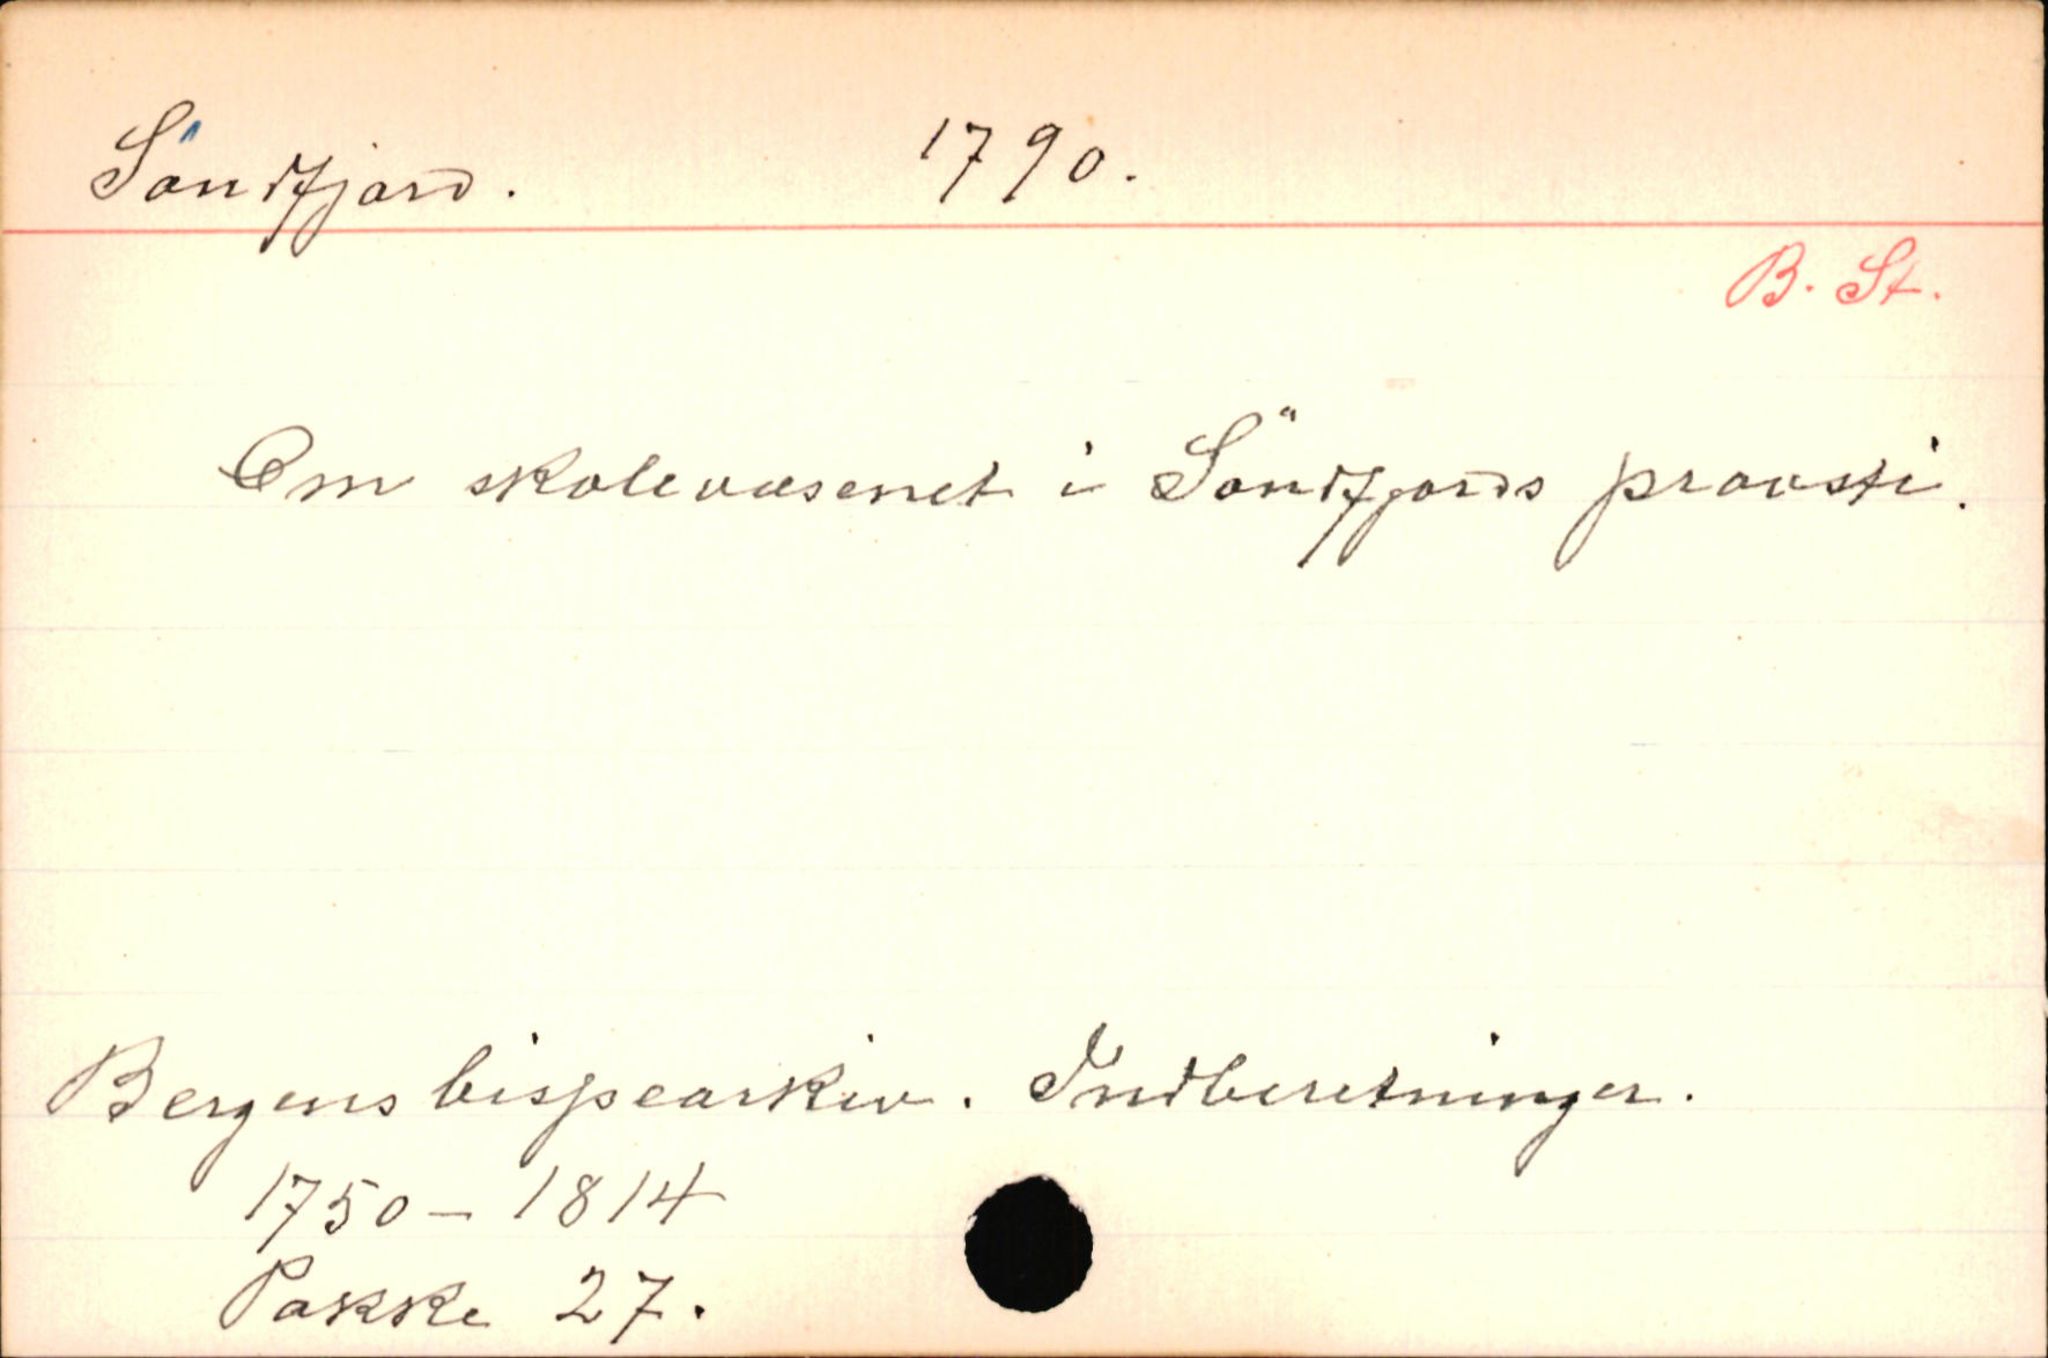 Söndfjord. 1790.
B. St.
Om skolevæsenet i Söndfjords provsti.
Bergens bispearkiv. Indberetninger.
1750-1814
Pakke 27.